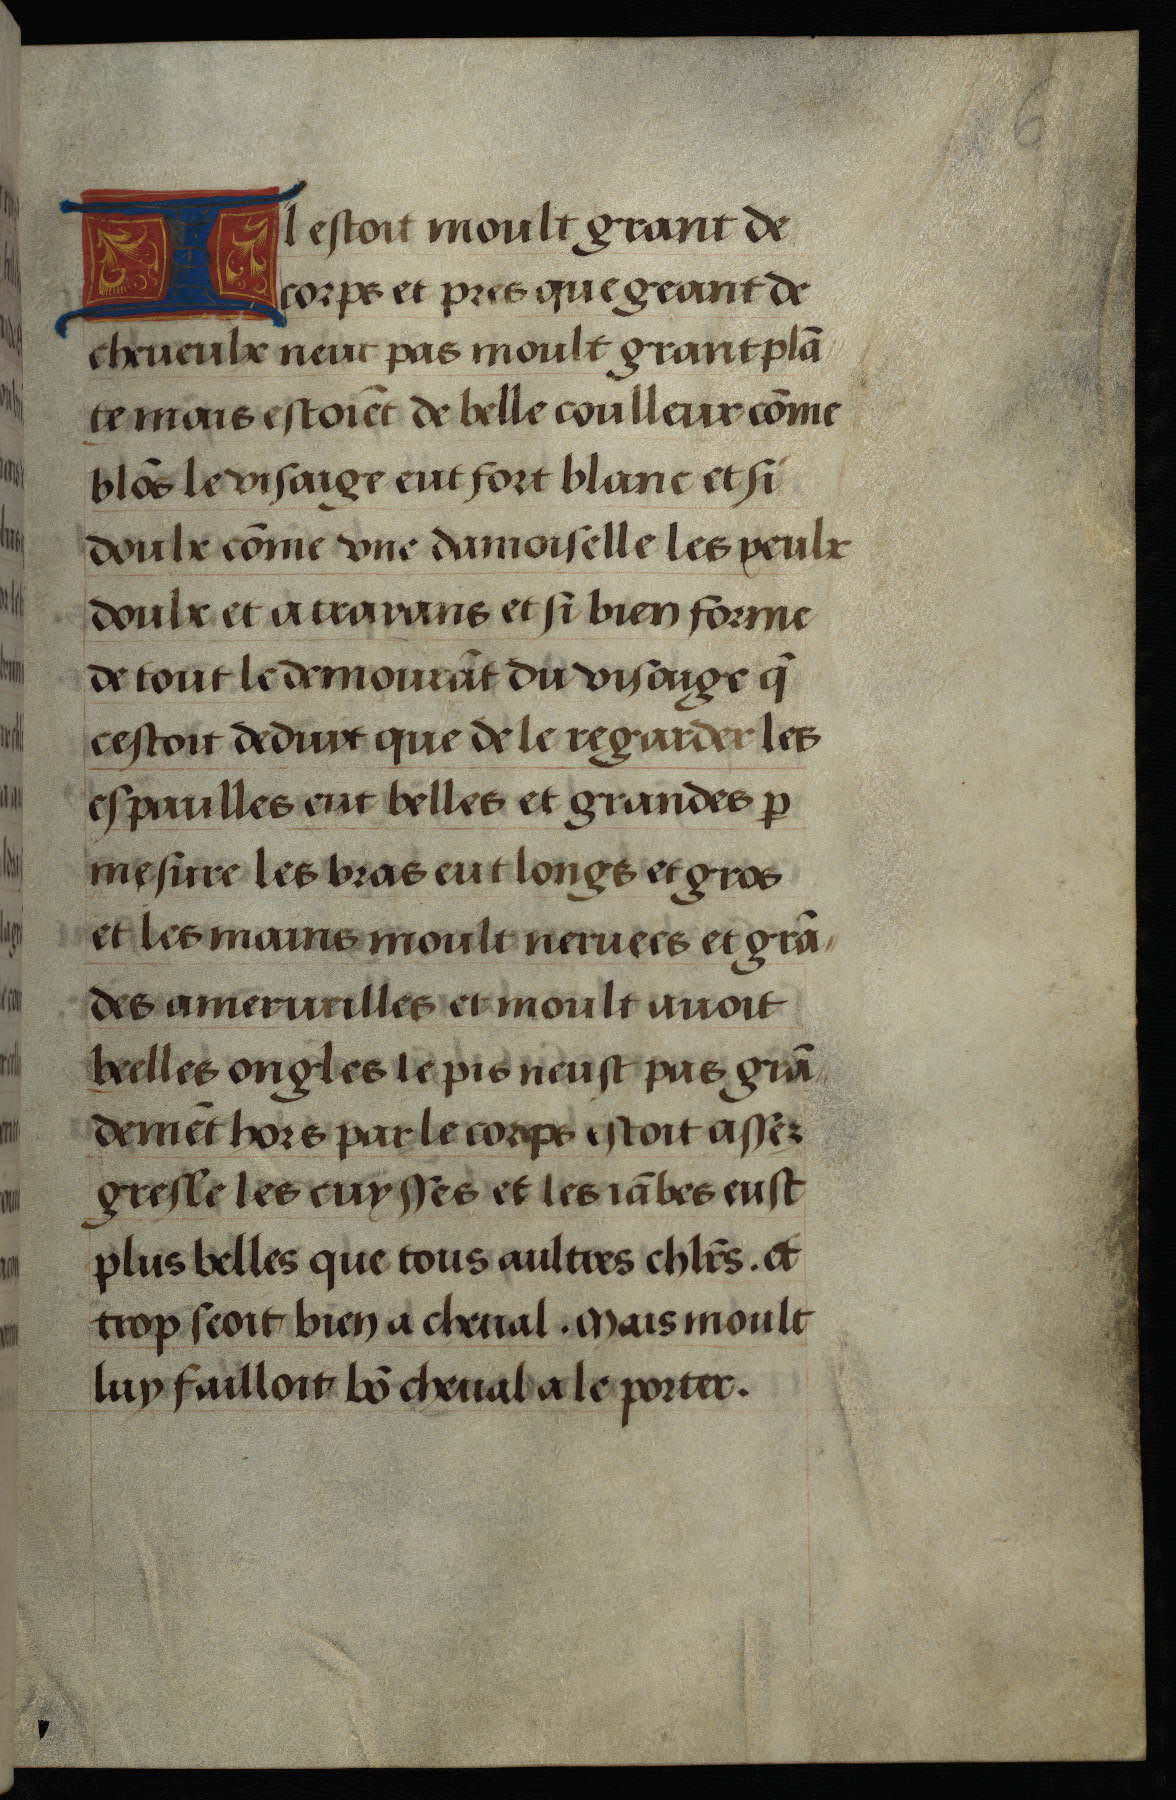 6
Il estoit moult grant de
corps et pres que geant de
cheueulx neut pas moult grant plā
te mais estoiēt de belle coulleur cōme
blōs le visaige eut fort blanc et si
doulx cōme vne damoiselle les yeulx
doulx et atrayans et si bien forme
de tout le demourāt du visaige q̄
cestoit deduyt que de le regarder les
espaulles eut belles et grandes ꝑ
mesure les bras eut longs et gros
et les mains moult neruees et grā
des amerueilles et moult auoit
beelles ongles le pis neust pas grā
demēt hors par le corps estoit assez
gresle les cuysses et les iābes eust
plus belles que tous aultres chlr̄s. et
trop seoit bien a cheual. Mais moult
luy failloit bō cheual a le porter.